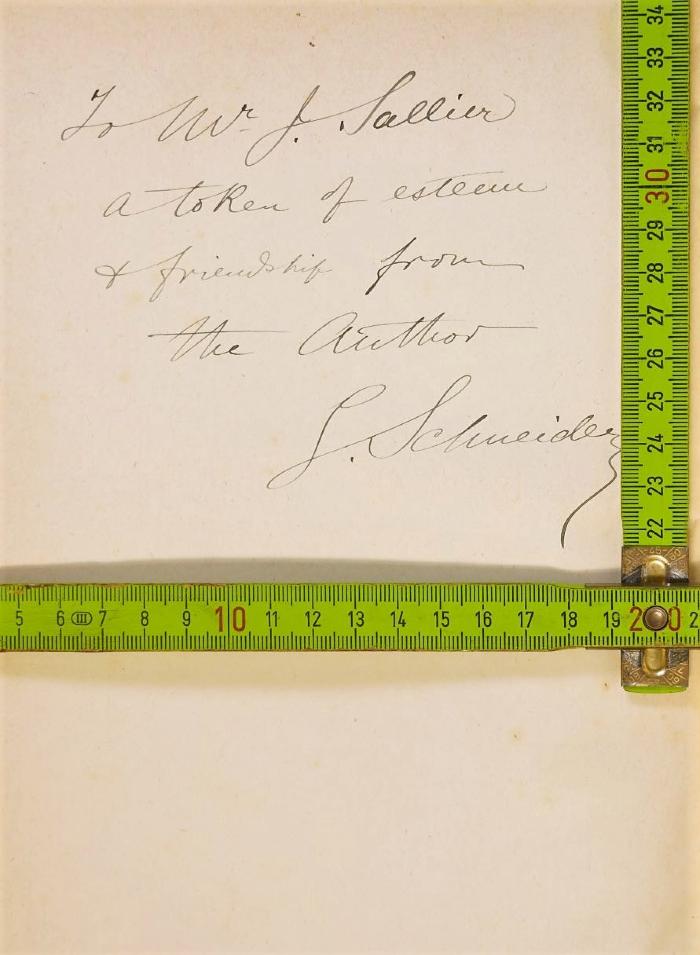 To Mr. J. Sallier
a token of esteem
& friendship from
the Author
G. Schneider
34
33
32
31
30
29
28
27
26
25
24
23
22
5 6 III 7 8 9 10 11 12 13 14 15 16 17 18 19 20 2